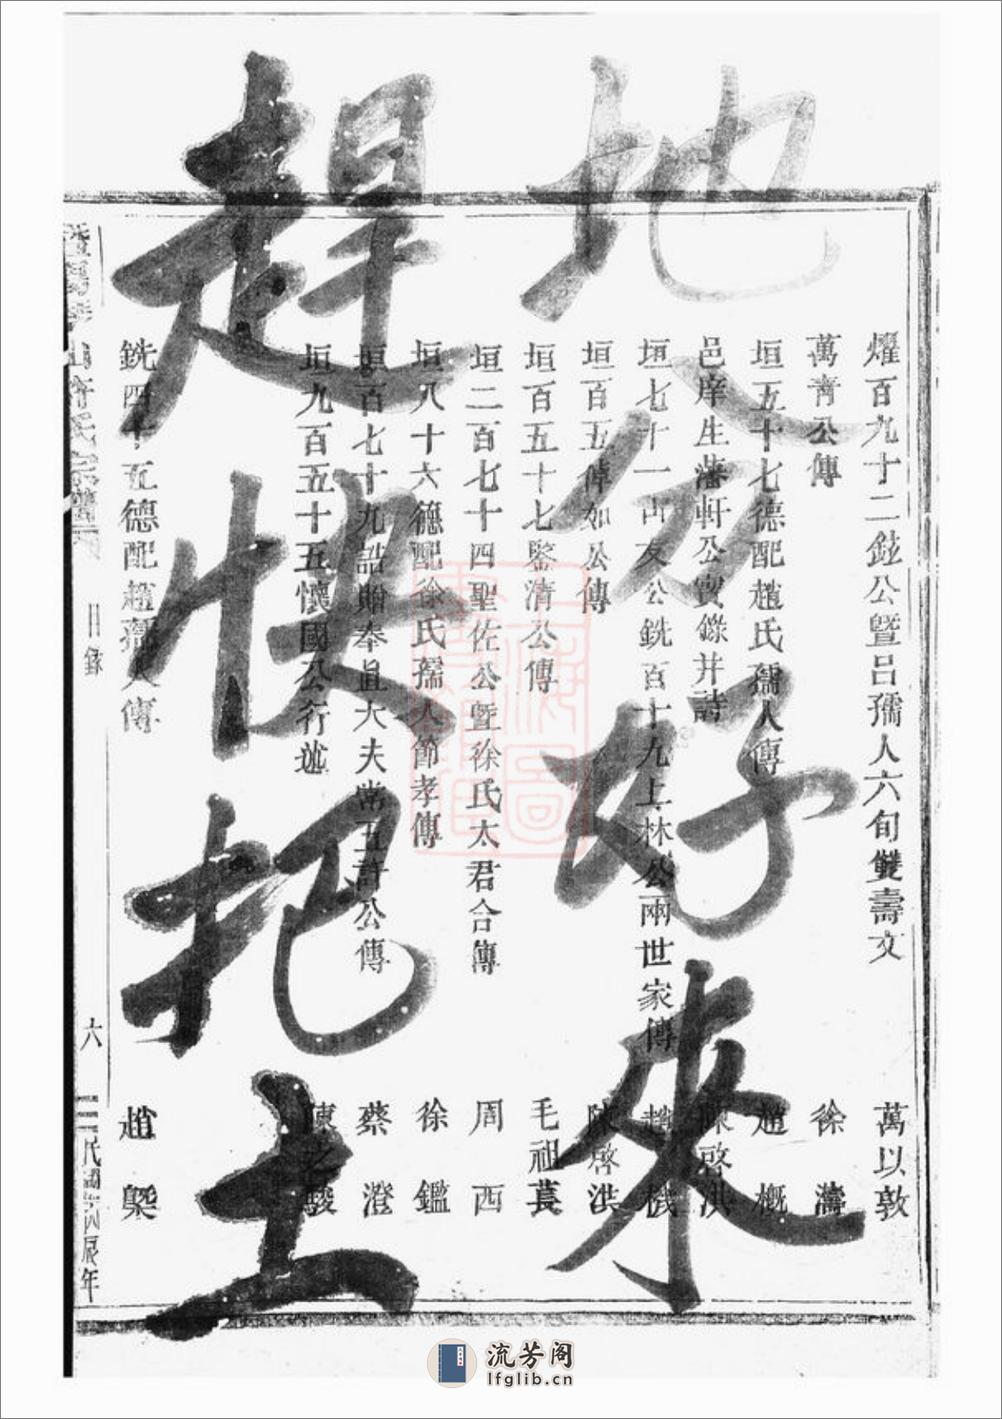 地分好來
趕快把土
燿百九十二鉉公暨呂孺人六旬雙壽文 萬以敦
萬青公傳 徐 濤
垣五十七德配趙氏孺人傳 趙 概
邑庠生藩軒公實錄并詩 陳啓洪
垣七十一山友公銑百十九上林公兩世家傳 趙 機
垣百五倬如公傳 陳啓洪
垣百五十七鑒清公傳 毛祖萇
垣二百七十四聖佐公暨徐氏太君合傳 周 西
垣八十六德配徐氏孺人節孝傳 徐 鑑
垣百七十九誥贈奉直大夫常五許公傳 蔡 澄
垣九百五十五懷國公行述 陳之駿
銑四十五德配趙孺人傳 趙 槩
山許氏宗譜
目錄
六
民國戊辰年
上海圖書館藏
流芳阁
lfglib.cn